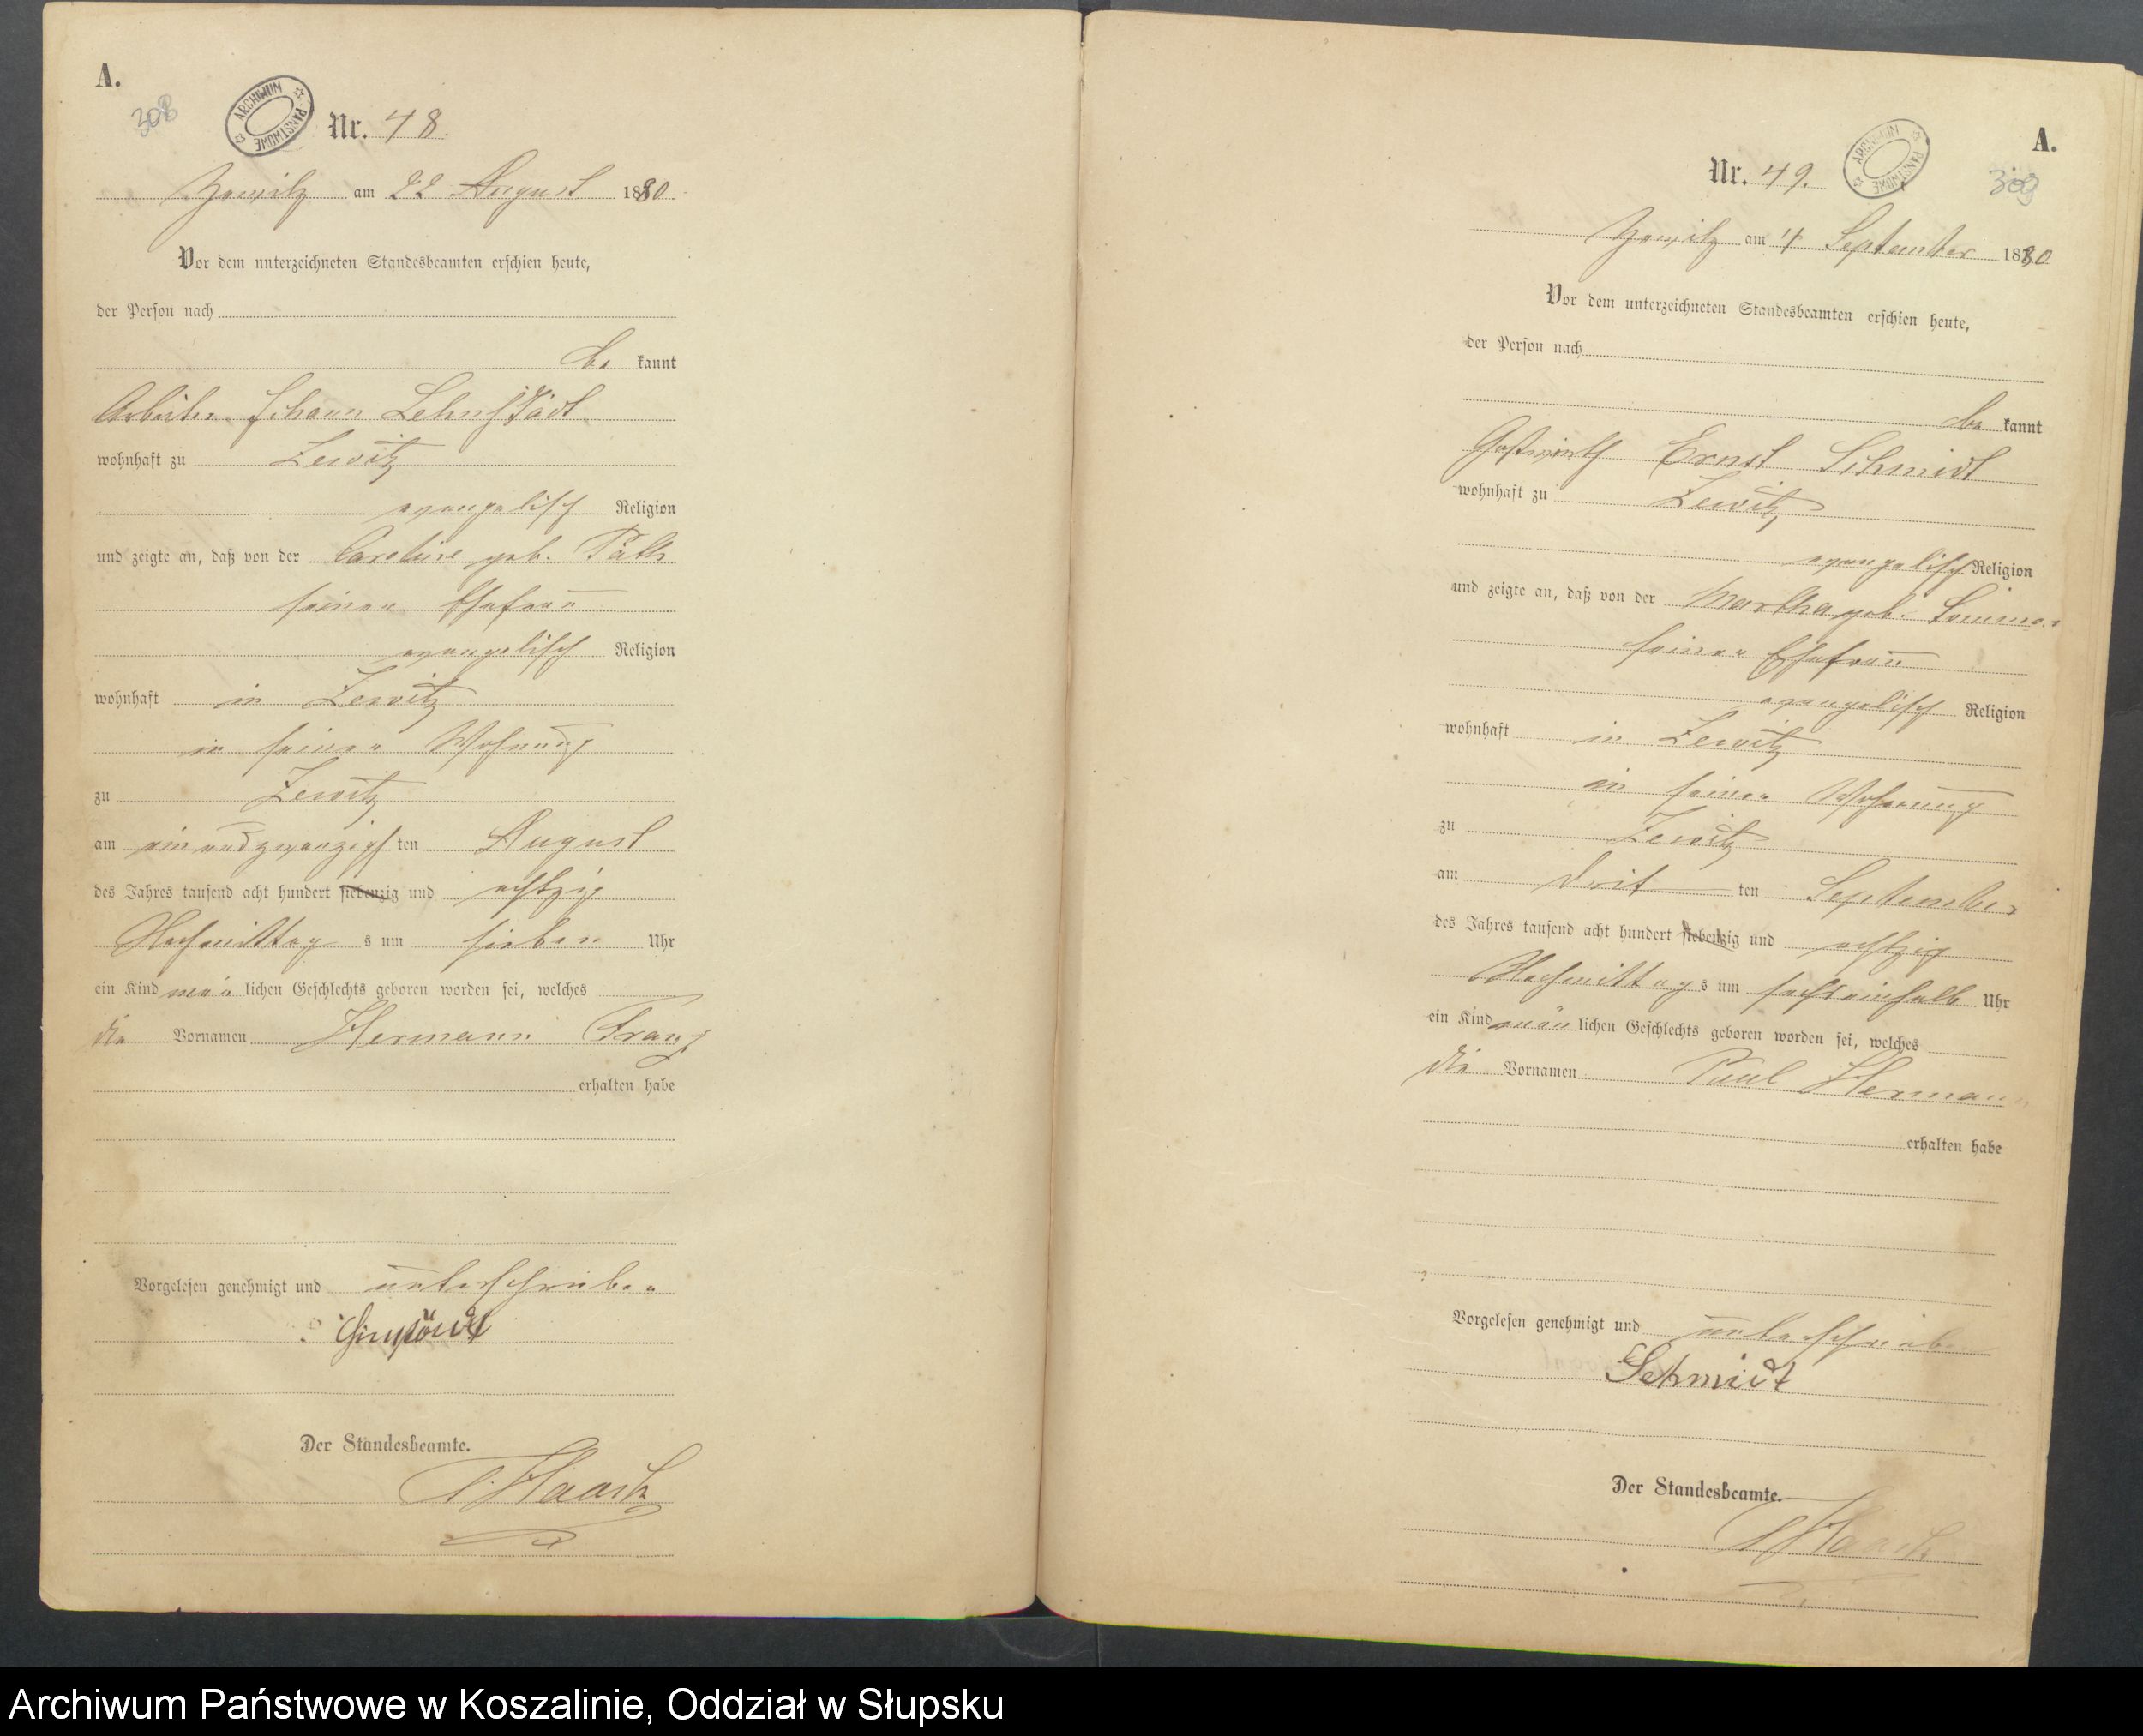 A.
308
ARCHIWUM PAŃSTWOWE
Nr. 48.
am 22 August 1880.
Vor dem unterzeichneten Standesbeamten erschien heute,
der Person nach
be kannt
Arbeiter Johann Lehnstädt
wohnhaft zu Zewitz
evangelisch Religion
und zeigte an, daß von der Caroline geb. Päth
seiner Ehefrau
evangelisch Religion
wohnhaft in Zewitz
in seiner Wohnung
zu Zewitz
am einundzwanzigsten August
des Jahres tausend acht hundert siebenzig und achtzig
Nachmittag s um sieben Uhr
ein Kind män lichen Geschlechts geboren worden sei, welches
die Vornamen Hermann Franz
erhalten habe
Vorgelesen genehmigt und unterschrieben
Der Standesbeamte.
Haack
A.
309
ARCHIWUM PAŃSTWOWE
Nr. 49.
am 4 September 1880
Vor dem unterzeichneten Standesbeamten erschien heute,
der Person nach
be kannt
Gastwirth Ernst Schmidt
wohnhaft zu Zewitz
evangelisch Religion
und zeigte an, daß von der Martha geb.
seiner Ehefrau
evangelisch Religion
wohnhaft in Zewitz
in seiner Wohnung
zu Zewitz
am drit ten September
des Jahres tausend acht hundert siebenzig und achtzig
Nachmittag s um sechseinhalb Uhr
ein Kind män lichen Geschlechts geboren worden sei, welches
die Vornamen Paul Hermann
erhalten habe
Vorgelesen genehmigt und unterschrieben
Schmidt
Der Standesbeamte.
Haack
Archiwum Państwowe w Koszalinie, Oddział w Słupsku